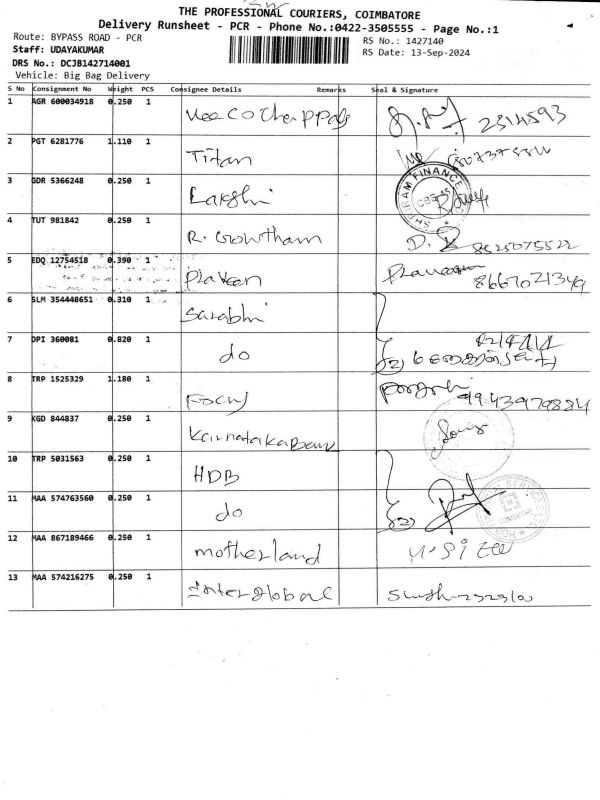 THE PROFESSIONAL COURIERS, COIMBATORE
Delivery Runsheet - PCR - Phone No.:0422-3505555 - Page No.:1
Route: BYPASS ROAD - PCR
RS No.: 1427140
Staff: UDAYAKUMAR
RS Date: 13-Sep-2024
DRS No.: DCJB142714001
Vehicle: Big Bag Delivery
S No Consignment No Weight PCS Consignee Details Remarks Seal & Signature
1 AGR 600034918 0.250 1 2314593
2 PGT 6281776 1.110 1 Titan
3 GDR 5366248 0.250 1 Lakshi SHRIRAM FINANCE CBE-45
4 TUT 981842 0.250 1 R. Gowtham D. 8525075522
5 EDQ 12754518 0.390 1 Praveen Praveen 8667021349
6 SLM 354448651 0.310 1 Sarabhi
7 DPI 360081 0.820 1 do (2)
8 TRP 1525329 1.180 1 9943979884
9 KGD 844837 0.250 1 Karnataka Bank
10 TRP 5031563 0.250 1 HDB
11 MAA 574763560 0.250 1 do (2)
12 MAA 867189466 0.250 1 motherland
13 MAA 574216275 0.250 1 Interglobal